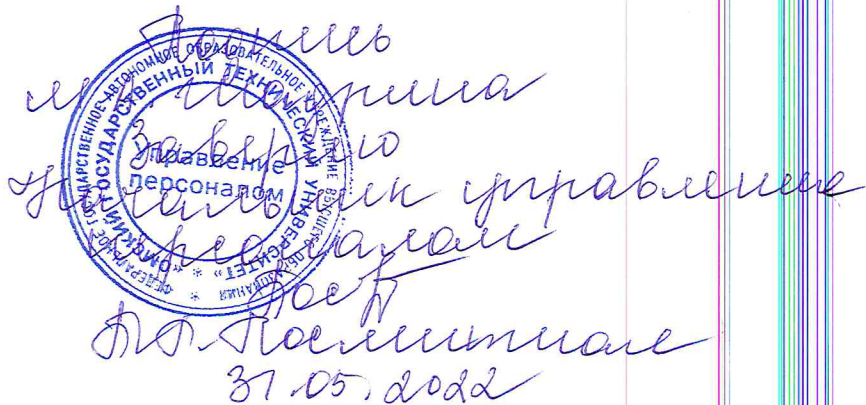 Подпись
заверяю
Начальник управления
персоналом
31.05.2022
ФЕДЕРАЛЬНОЕ ГОСУДАРСТВЕННОЕ АВТОНОМНОЕ ОБРАЗОВАТЕЛЬНОЕ УЧРЕЖДЕНИЕ ВЫСШЕГО ОБРАЗОВАНИЯ
«ОМСКИЙ ГОСУДАРСТВЕННЫЙ ТЕХНИЧЕСКИЙ УНИВЕРСИТЕТ»
Управление
персоналом